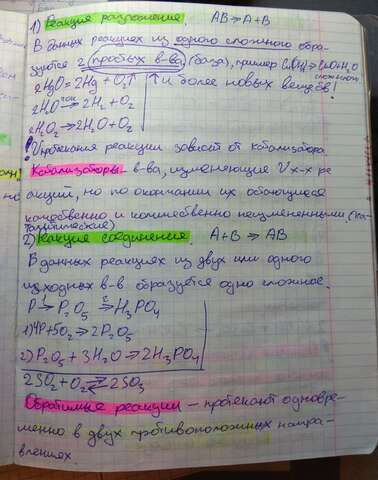 1) Реакция разложения. AB ⇒ A + B
В данных реакциях из одного сложного обра-
зуется 2 (простых в-ва) (база), пример
и более новых веществ!
2HgO = 2Hg + O₂↑
2H₂O ток→ 2H₂ + O₂
2H₂O₂ → 2H₂O + O₂
! протекания реакции зависят от катализатора
Катализаторы - в-ва, изменяющие V х-х ре
акций, но по окончании их остающиеся
качественно и количественно неизменными.
2) Реакция соединения. A + B ⇒ AB
В данных реакциях из двух или одного
исходных в-в образуется одно сложное.
P 1→ P₂O₅ 2→ H₃PO₄
1) 4P + 5O₂ → 2P₂O₅
2) P₂O₅ + 3H₂O → 2H₃PO₄
2SO₂ + O₂ ⇄ 2SO₃
Обратимые реакции – протекают одновре-
менно в двух противоположных направ-
лениях